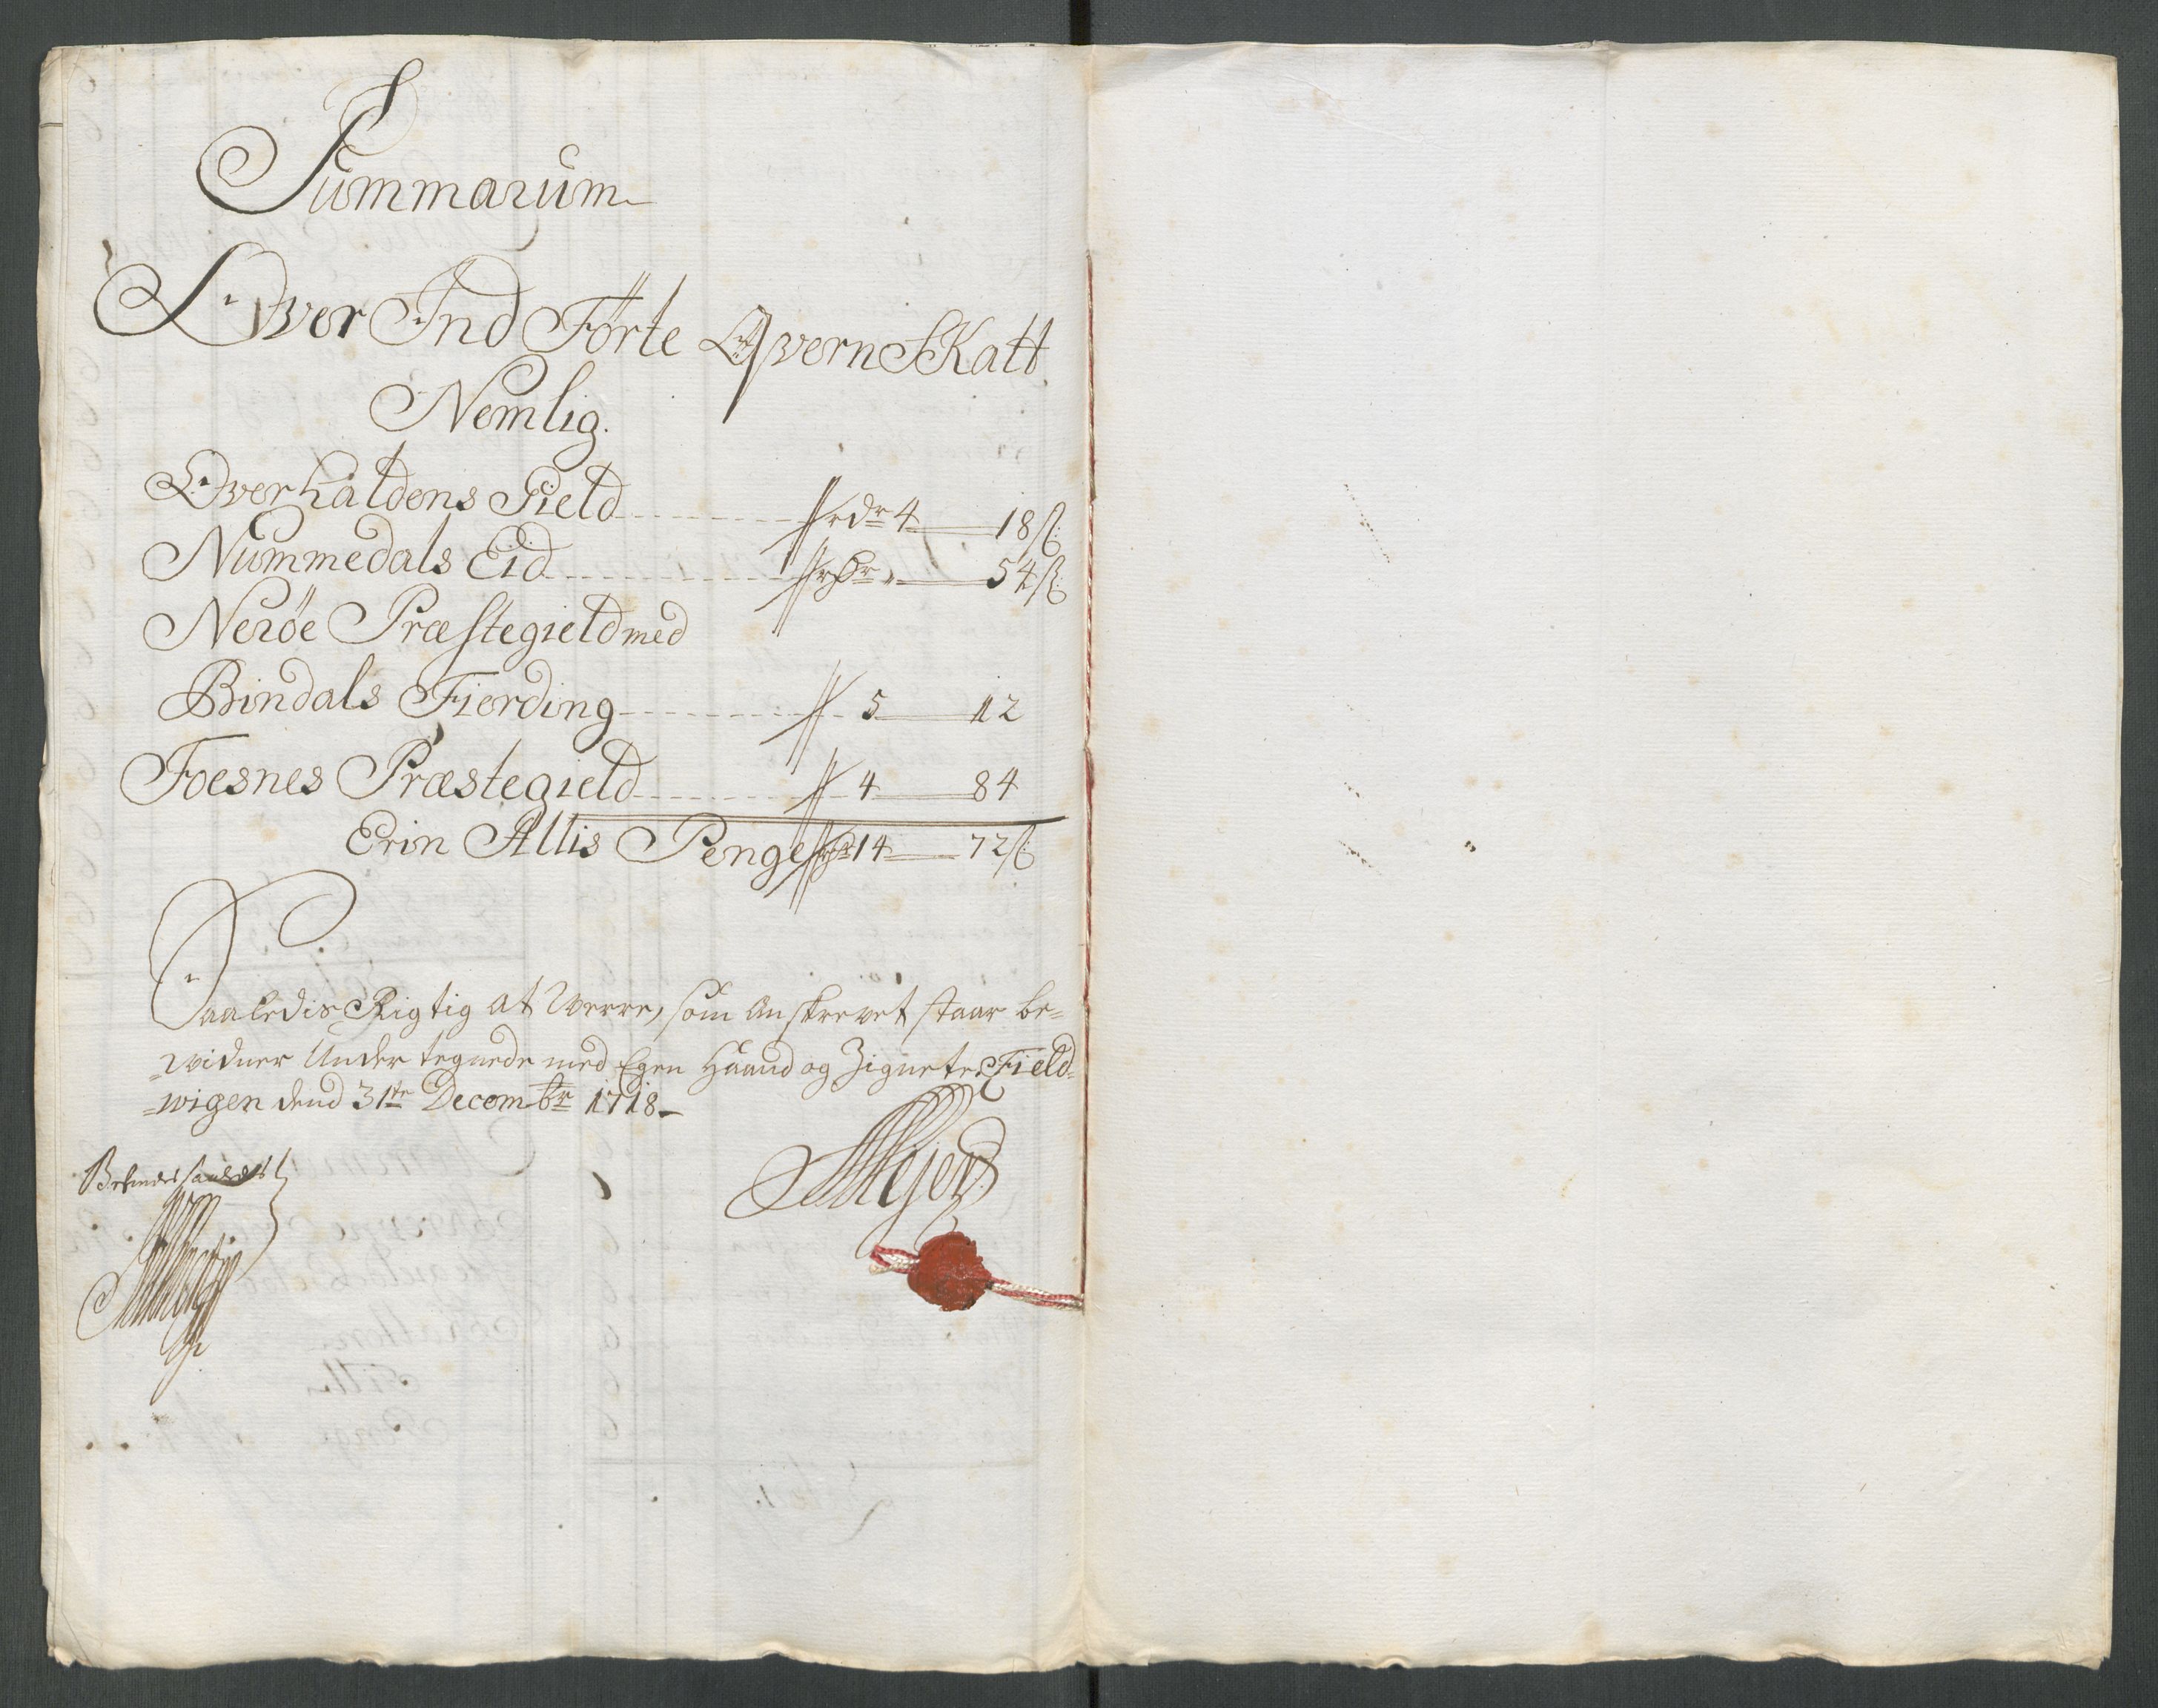 Summarum
Over Ind Förte Qvern SKatt
Nemlig.
Overhaldens Gield rdr 4 18 ß:
Nummedals Eid rdr " 54 ß:
Neröe Præstegield med
Bindals Fierding 5 12
Foesnes Præstegield 4 84
Erin Allis Penge rdr 14 72 ß:
Saaledis Rigtig at Werre, som Anskrevet staar be=
=widner Under tegnede med Egen Haand og Zignete Field=
=wigen dend 31te Decembr 1718
Befindes saaledes